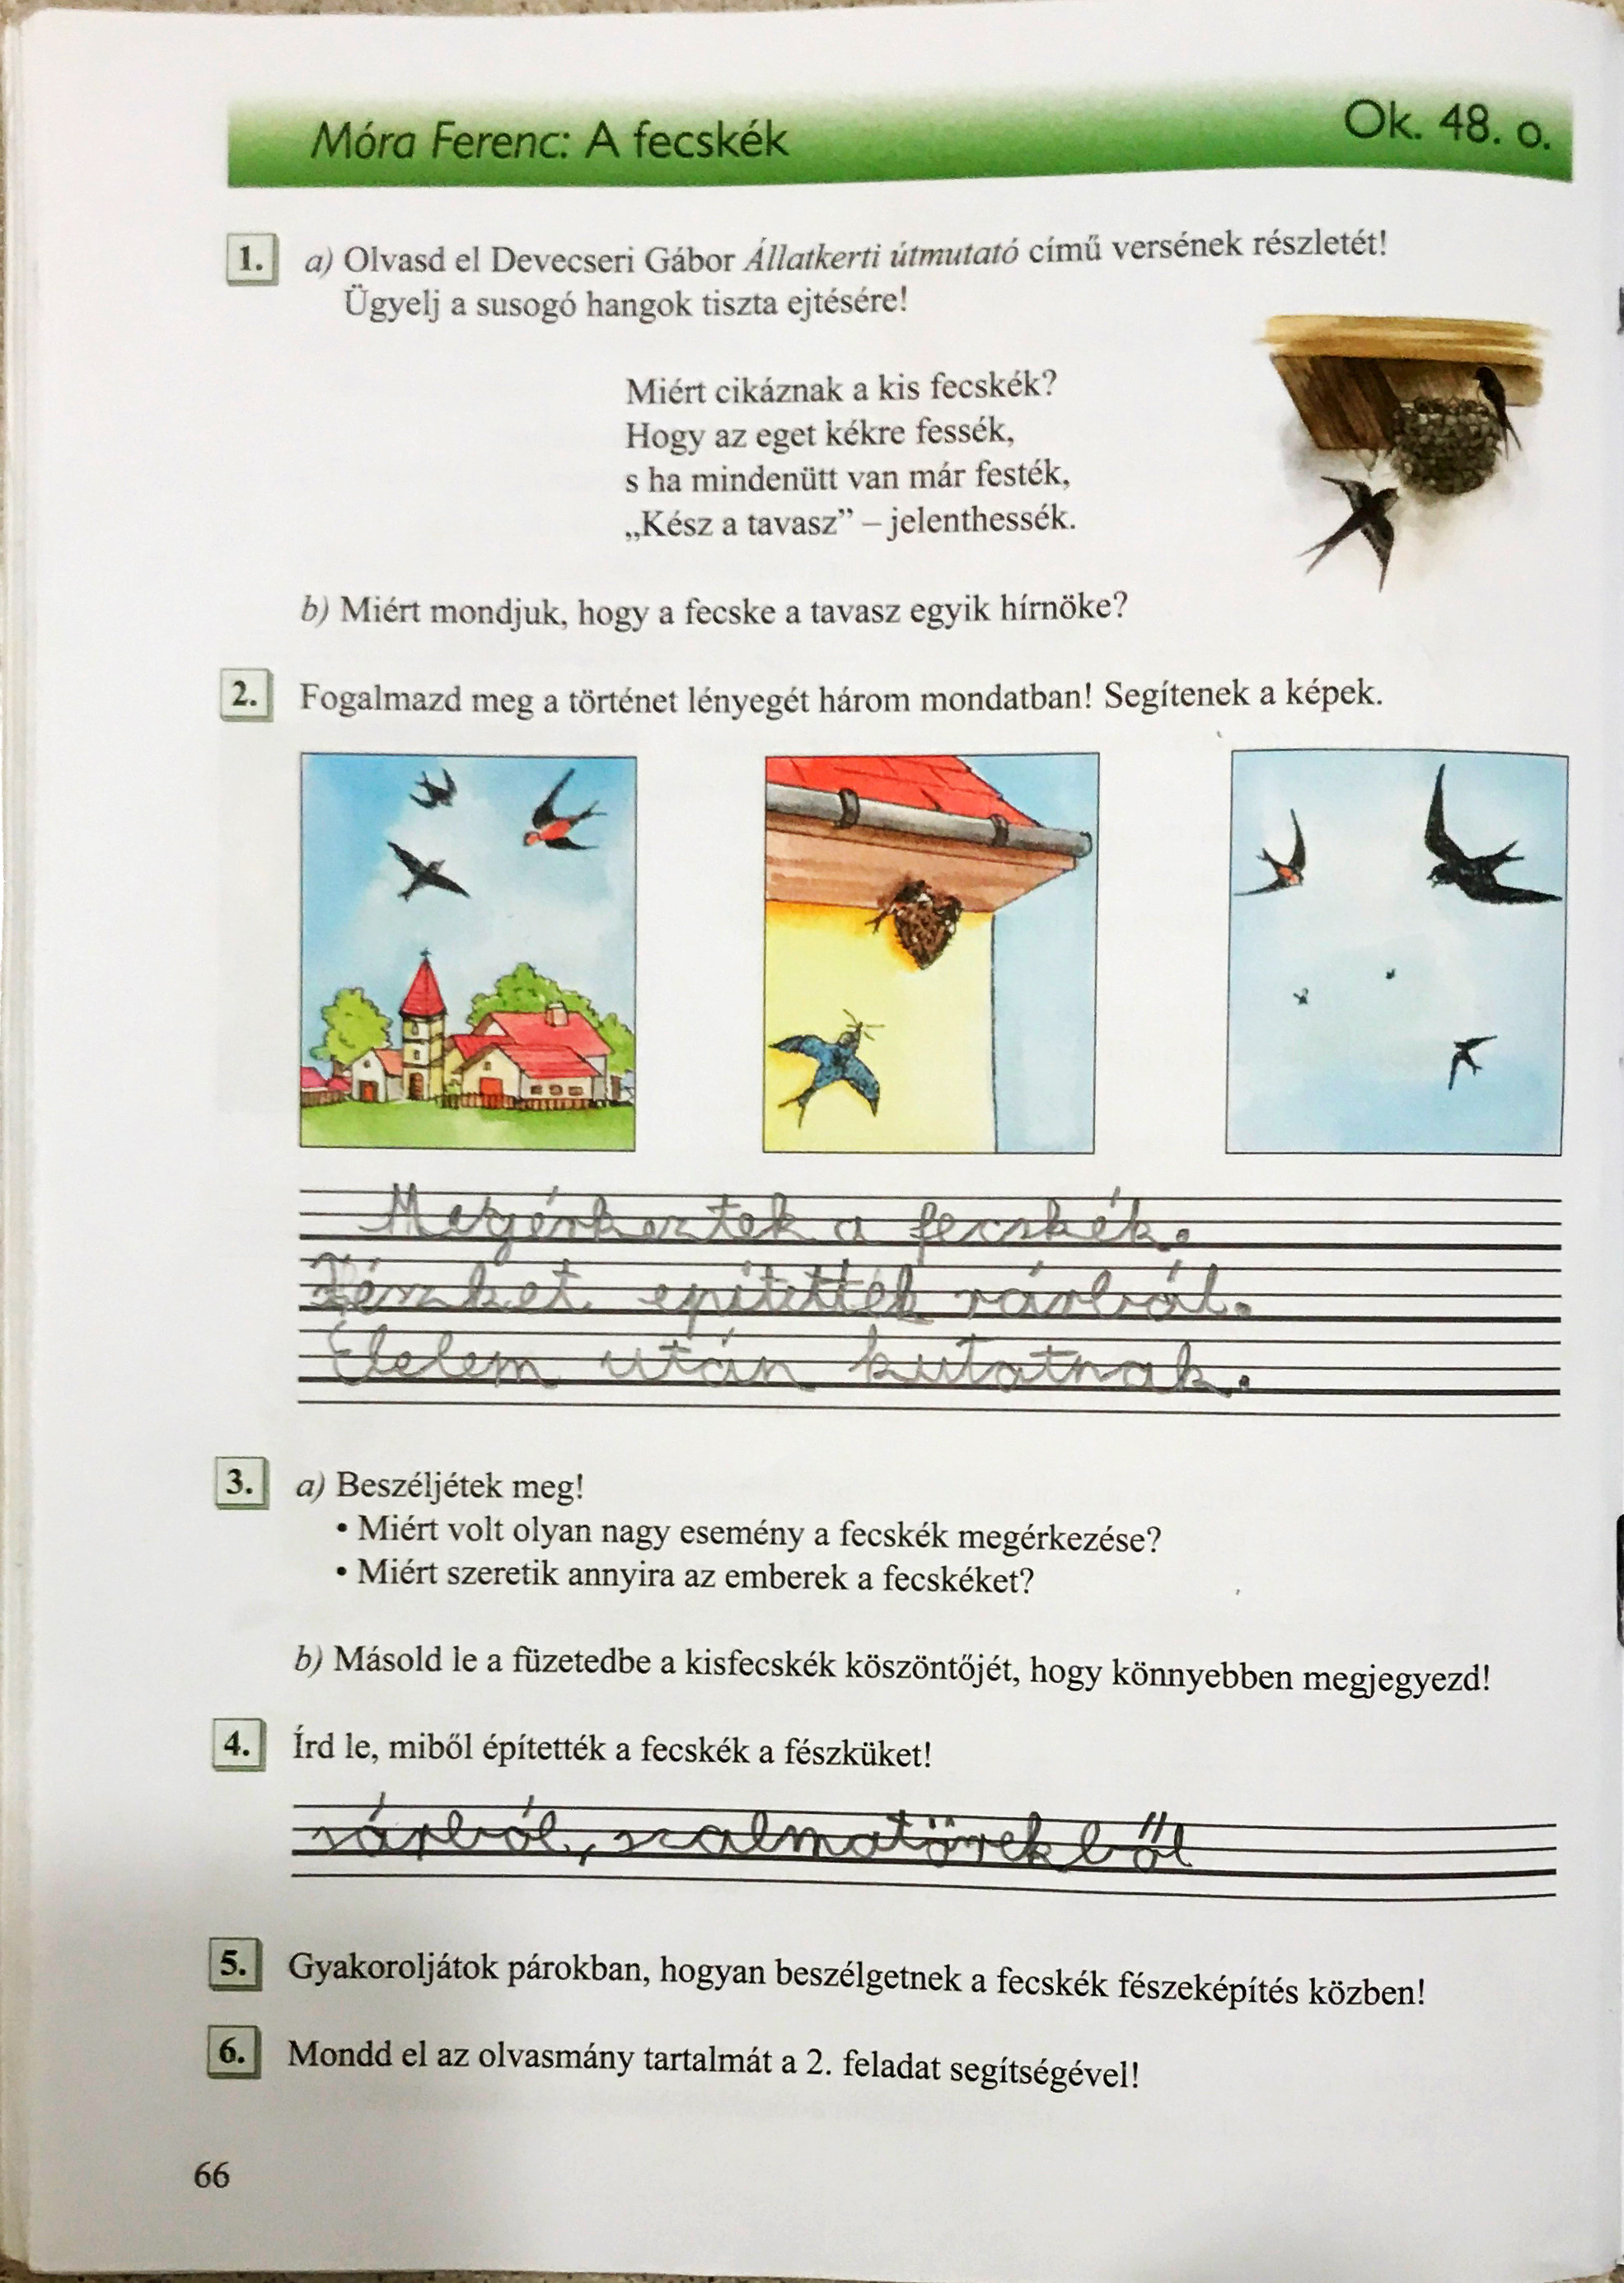 Móra Ferenc: A fecskék
Ok. 48. o.
1. a) Olvasd el Devecseri Gábor Állatkerti útmutató című versének részletét!
Ügyelj a susogó hangok tiszta ejtésére!
Miért cikáznak a kis fecskék?
Hogy az eget kékre fessék,
s ha mindenütt van már festék,
„Kész a tavasz” – jelenthessék.
b) Miért mondjuk, hogy a fecske a tavasz egyik hírnöke?
2. Fogalmazd meg a történet lényegét három mondatban! Segítenek a képek.
Megérkeztek a fecskék.
Fészket építettek sárból.
Élelem után kutatnak.
3. a) Beszéljétek meg!
• Miért volt olyan nagy esemény a fecskék megérkezése?
• Miért szeretik annyira az emberek a fecskéket?
b) Másold le a füzetedbe a kisfecskék köszöntőjét, hogy könnyebben megjegyezd!
4. Írd le, miből építették a fecskék a fészküket!
sárból, szalmatörekből
5. Gyakoroljátok párokban, hogyan beszélgetnek a fecskék fészeképítés közben!
6. Mondd el az olvasmány tartalmát a 2. feladat segítségével!
66